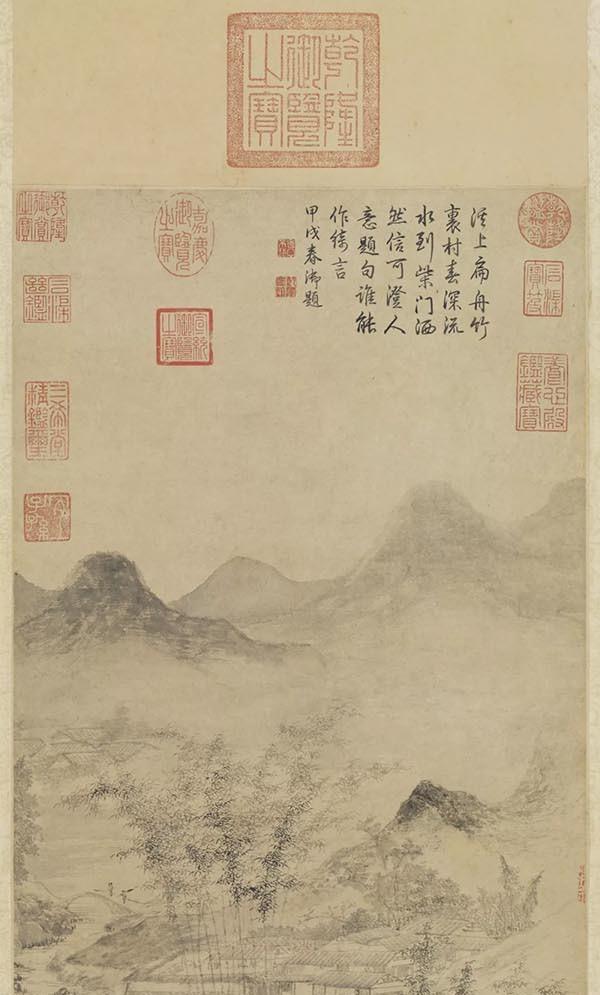 乾隆御覽之寶
溪上扁舟竹
裏村春深流
水到柴門洒
然信可澄人
意題句誰能
作綺言
甲戌春御題
乾隆鑑賞
石渠寶笈
養心殿鑑藏寶
嘉慶御覽之寶
宣統御覽之寶
乾隆御賞之寶
石渠繼鑑
三希堂精鑑璽
宜子孫